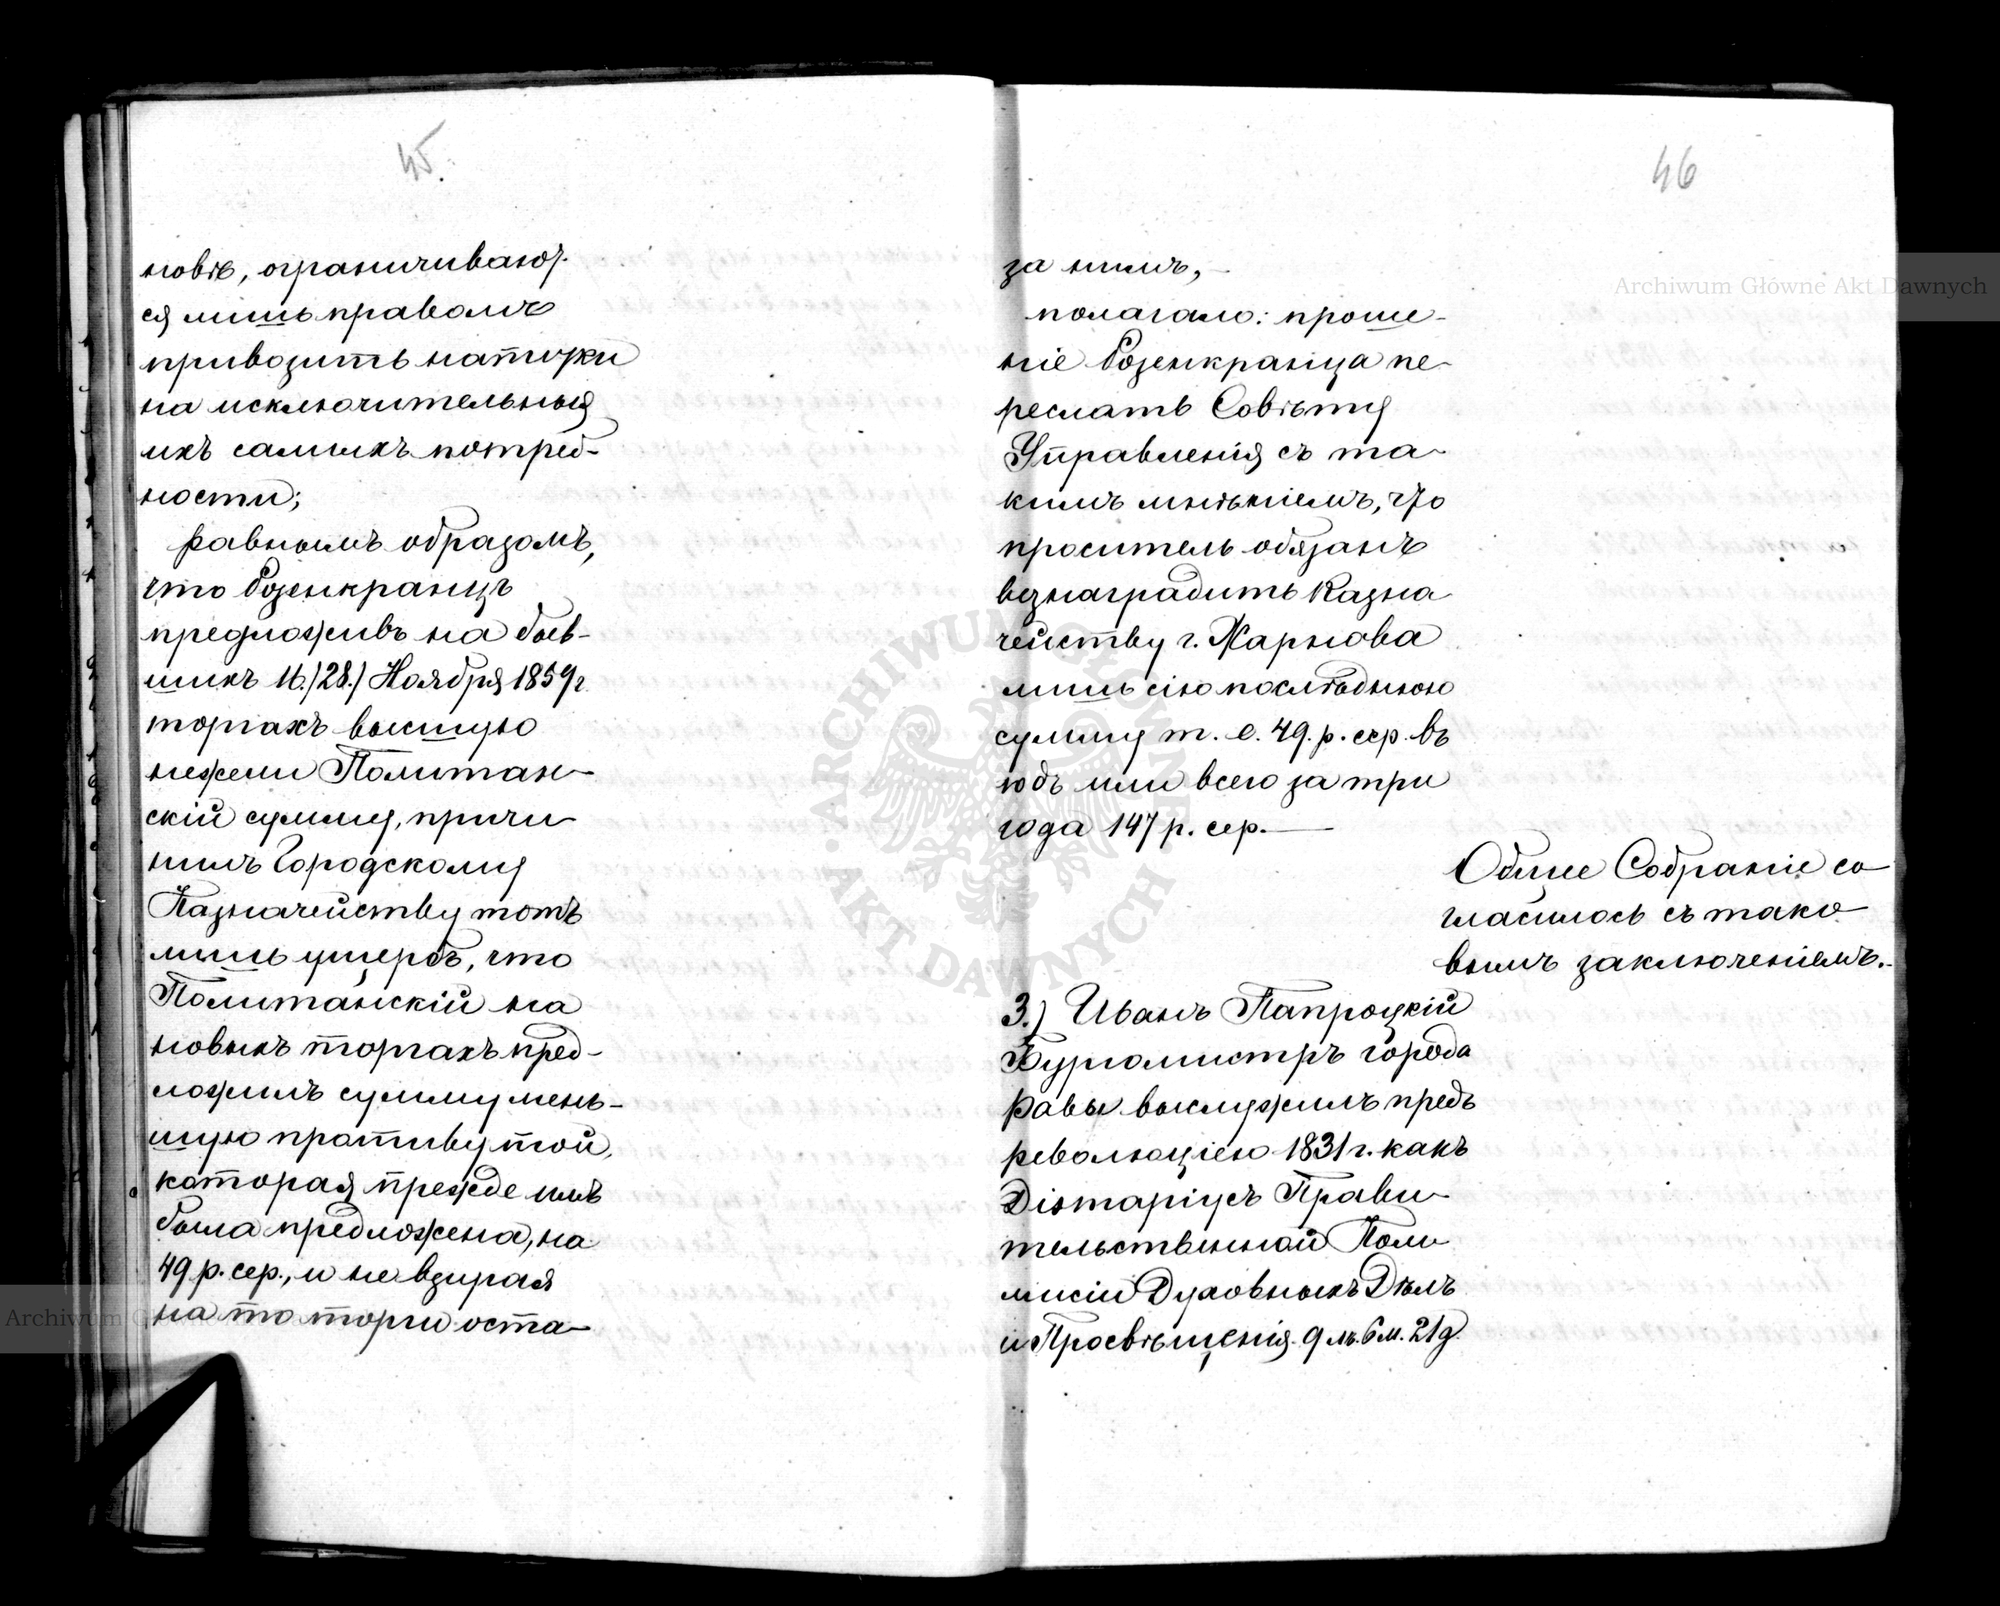 45.
новѣ, ограничивают-
ся лишь правомъ
привозить напитки
на исключительныя
ихъ самихъ потреб-
ности;
равнымъ образомъ,
что Розенкранцъ
предложивъ на быв-
шихъ 16./28./ Ноября 1859 г.
торгахъ высшую
нежели Политан-
скій сумму, причи-
нилъ Городскому
Казначейству тотъ
лишь ущербъ, что
Политанскій на
новыхъ торгахъ пред-
ложилъ сумму мень-
шую противу той,
которая прежде имъ
была предложена, на
49 р. сер., и не взирая
на то торги оста-
46
за нимъ,
полагало: проше-
ніе Розенкранца пе-
реслать Совѣту
Управленія съ та-
кимъ мнѣніемъ, что
проситель обязанъ
вознаградить Казна-
чейству г. Жарнова
лишь сію послѣднюю
сумму т. е. 49. р. сер. въ
годъ или всего за три
года 147 р. сер.
Общее Собраніе со-
гласилось съ тако-
вымъ заключеніемъ.
3.) Иванъ Папроцкій
Бургомистръ города
Равы выслужилъ предъ
революціею 1831 г. какъ
Діэтаріусъ Прави-
тельственной Ком-
мисіи Духовныхъ Дѣлъ
и Просвѣщенія 9 л. 6 м. 21 д.
Archiwum Główne Akt Dawnych
ARCHIWUM GŁÓWNE AKT DAWNYCH